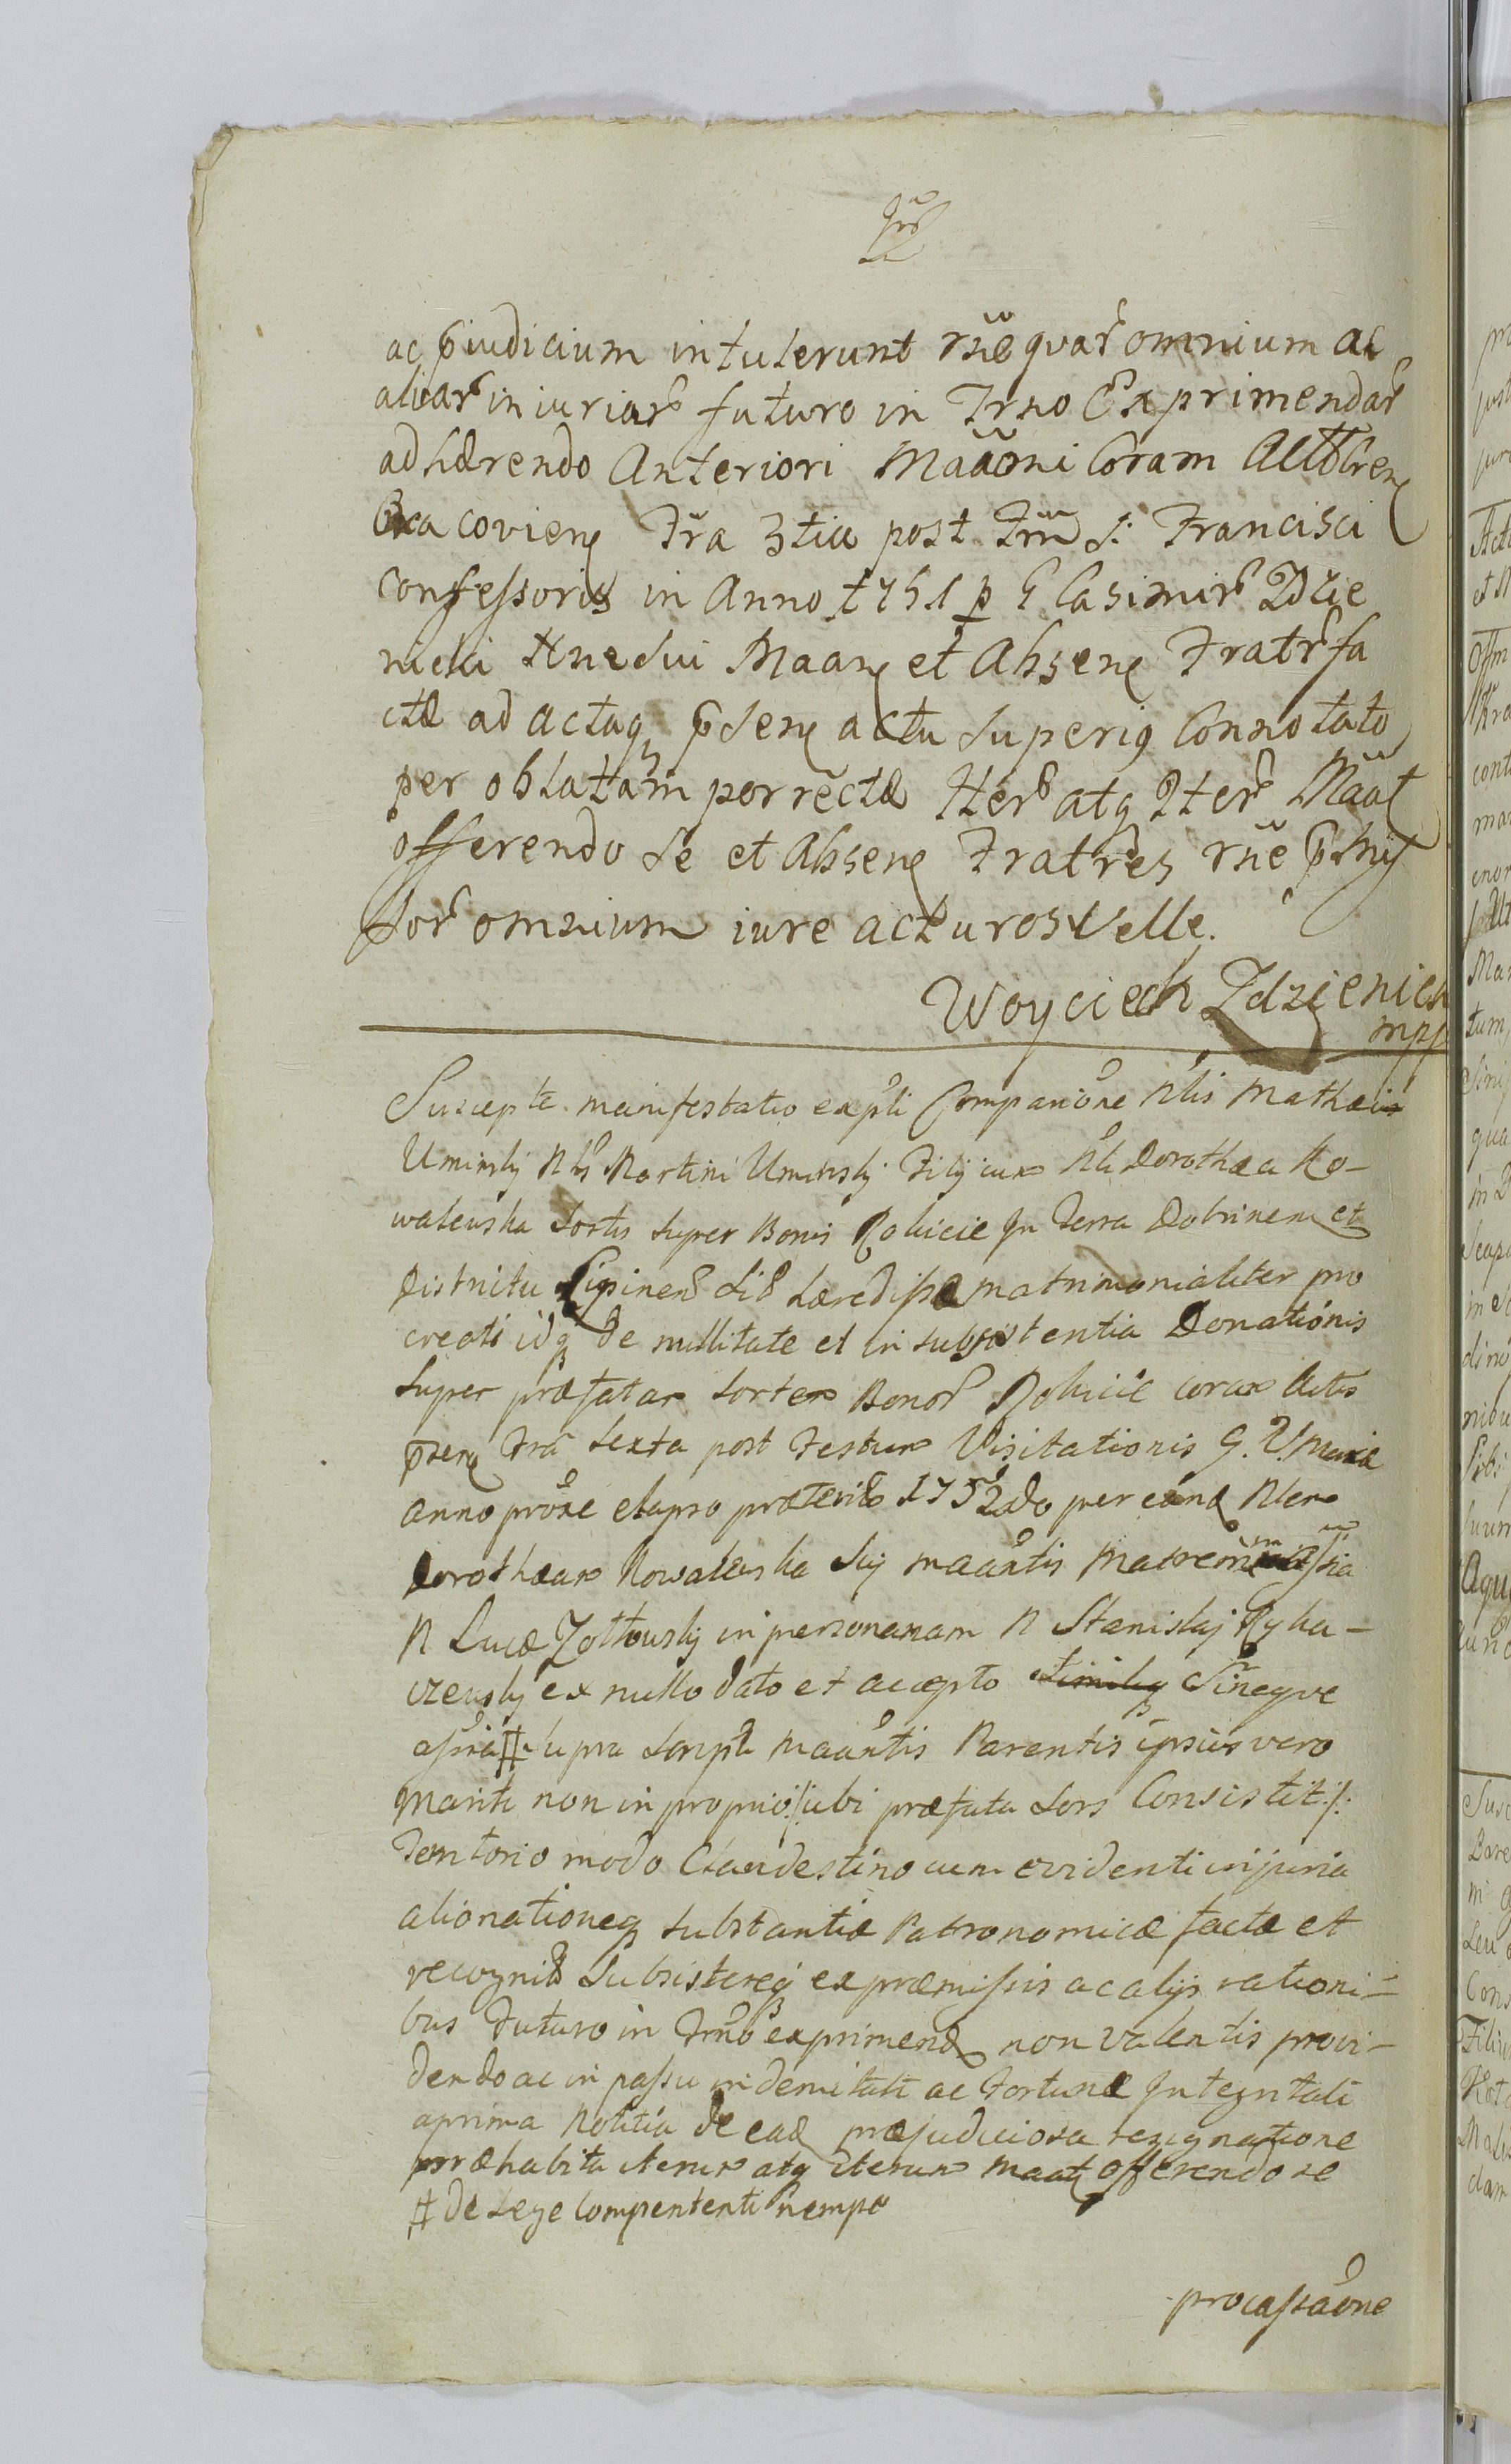 ac p̄iudicium intulerunt rñe quar̃ omnium ac
aliar̃ iniuriar̃ futuro in Trno Exprimendar̃
adhærendo Anteriori Maãoni Coram Actis
covien Fr̃a 3tia post Fm̃ S: Francisci
confessoris in Anno 1751 p G Casimir̃ Zdzie
nicki sui Maan et Absen Fratr̃ fa
ctæ ad actaq p̄sen actu superiq Connotato
per oblatam porrectæ Iter̃ atq Iter̃ Mãat
offerendo se et Absen Fratres rñe p̄mis
sor̃ omnium iure acturos Velle.
Woyciech Zdzienick
mpp
Suscepta manifestatio expti Comparitiõne Nblis Mathæi
Uminsky Nb Martini Uminsky Filij cum Nbli Dorothæa Ko-
walewska Sortis super Bonis Rokicie In Terra Dobrinen et
Districtu Lipinen Sib hæredissæ matrimonialiter pro
creati idq de nullitate et in subsistentia Donationis
super præfatam sortem Bonor̃ Rokicie coram Actis
p̄sen Fr̃a sexta post Festum Visitationis G. V. Mariæ
anno prõxe elapso præterito 1752do per eand Nblem
Dorothæam Kowalewska sui maãntis Matrem
N Lucæ Zoltowsky in personam N Stanislaj Ryka-
czewsky ex nullo dato et accepto similiq Sineqve
assñia # supra script Maãntis Parentis ipsius vero
Mariti non in proprio /: ubi præfata Sors Consistit :/
Territorio modo Clandestino cum evidenti injuria
alienationeq substantiæ Patronomicæ factæ et
recognit Subsistereq ex præmissis ac alijs rationi-
bus Futuro in Trno exprimend non valentis provi-
dendo ac in passu indemnitati ac Fortunæ Integritati
aprima Notitia de ead præjudiciosa resignatione
præhabita iterum atq iterum Maat offerendo se
# de Lege Compententi nempe
processãone